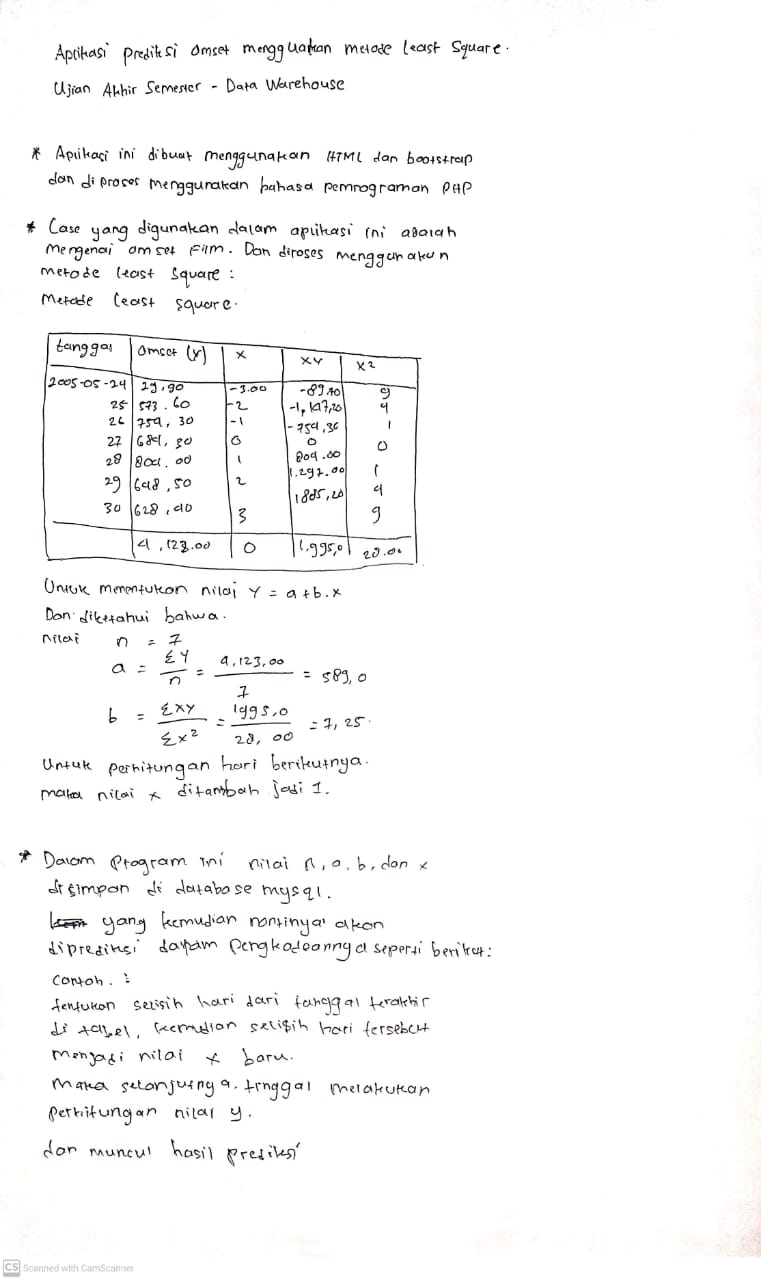 Aplikasi prediksi omset menggunakan metode Least Square.
Ujian Akhir Semester - Data Warehouse
* Aplikasi ini dibuat menggunakan HTML dan bootstrap
dan di proses menggunakan bahasa pemrograman PHP
* Case yang digunakan dalam aplikasi ini adalah
Mengenai omset Film. Dan diroses menggunakan
metode least square :
Metode least square.
tanggal Omset (Y) X XY X2
2005-05-24 29,90 -3.00 -89.40 9
25 573.60 -2 -1,147,20 4
26 754,30 -1 -754,30 1
27 684,30 0 0 0
28 804.00 1 804.00 1
29 648,50 2 1.297.00 4
30 628,40 3 1885,20 9
4,123.00 0 1,995,0 28.00
Untuk menentukan nilai Y = a+b.x
Dan diketahui bahwa.
nilai n = 7
a = ΣY/n = 4,123,00/7 = 589,0
b = ΣXY/Σx² = 1995,0/28,00 = 7,25.
Untuk perhitungan hari berikutnya.
maka nilai x ditambah jadi 1.
* Dalam Program ini nilai n, a, b, dan x
di simpan di database mysql.
yang kemudian nantinya akan
diprediksi dalam pengkodeannya seperti berikut:
Contoh. :
tentukan selisih hari dari tanggal terakhir
di tabel, kemudian selisih hari tersebut
menjadi nilai x baru.
Maka selanjutnya. tinggal melakukan
perhitungan nilai y.
dan muncul hasil prediksi
CS Scanned with CamScanner